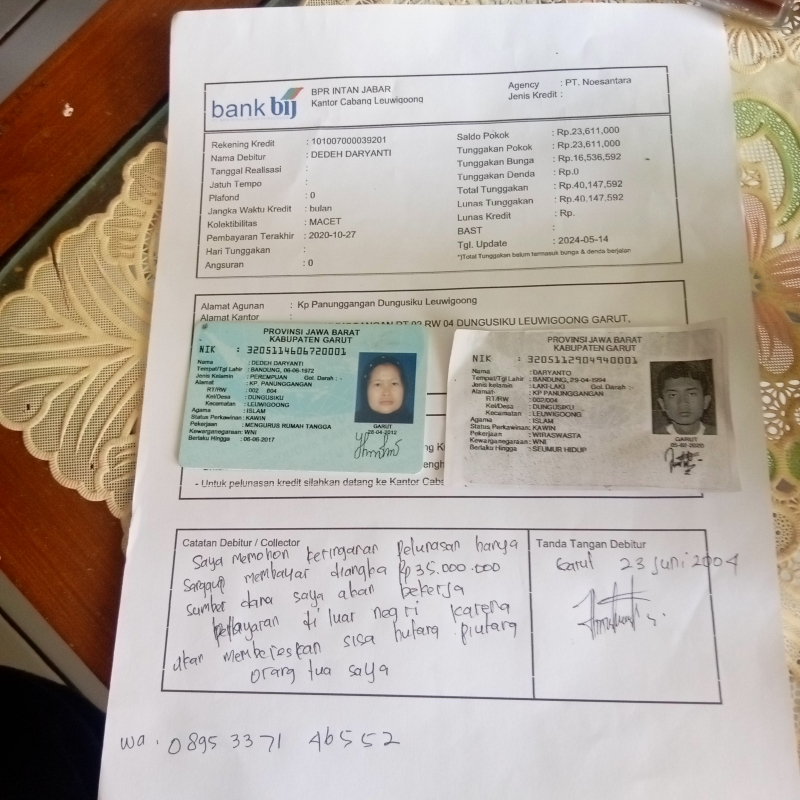 bank bij
BPR INTAN JABAR
Kantor Cabang Leuwigoong
Agency : PT. Noesantara
Jenis Kredit :
Rekening Kredit : 101007000039201
Nama Debitur : DEDEH DARYANTI
Tanggal Realisasi :
Jatuh Tempo :
Plafond : 0
Jangka Waktu Kredit : bulan
Kolektibilitas : MACET
Pembayaran Terakhir : 2020-10-27
Hari Tunggakan :
Angsuran : 0
Saldo Pokok : Rp.23,611,000
Tunggakan Pokok : Rp.23,611,000
Tunggakan Bunga : Rp.16,536,592
Tunggakan Denda : Rp.0
Total Tunggakan : Rp.40,147,592
Lunas Tunggakan : Rp.40,147,592
Lunas Kredit : Rp.
BAST :
Tgl. Update : 2024-05-14
*)Total Tunggakan belum termasuk bunga & denda berjalan
Alamat Agunan : Kp Panunggangan Dungusiku Leuwigoong
Alamat Kantor :
RT 02 RW 04 DUNGUSIKU LEUWIGOONG GARUT,
PROVINSI JAWA BARAT
KABUPATEN GARUT
NIK : 3205114606720001
Nama : DEDEH DARYANTI
Tempat/Tgl Lahir : BANDUNG, 06-06-1972
Jenis Kelamin : PEREMPUAN Gol. Darah : -
Alamat : KP. PANUNGGANGAN
RT/RW : 002 004
Kel/Desa : DUNGUSIKU
Kecamatan : LEUWIGOONG
Agama : ISLAM
Status Perkawinan : KAWIN
Pekerjaan : MENGURUS RUMAH TANGGA
Kewarganegaraan : WNI
Berlaku Hingga : 06-06-2017
GARUT
28-04-2012
PROVINSI JAWA BARAT
KABUPATEN GARUT
NIK : 3205112904940001
Nama : DARYANTO
Tempat/Tgl Lahir : BANDUNG, 29-04-1994
Jenis Kelamin : LAKI-LAKI Gol. Darah : -
Alamat : KP PANUNGGANGAN
RT/RW : 002/004
Kel/Desa : DUNGUSIKU
Kecamatan : LEUWIGOONG
Agama : ISLAM
Status Perkawinan : KAWIN
Pekerjaan : WIRASWASTA
Kewarganegaraan : WNI
Berlaku Hingga : SEUMUR HIDUP
GARUT
- Untuk pelunasan kredit silahkan datang ke Kantor
Catatan Debitur / Collector
Saya memohon keringanan pelunasan hanya
sanggup membayar diangka Rp 35.000.000
sumber dana saya akan bekerja
pelayaran di luar negri karena
akan membereskan sisa hutang piutang
orang tua saya
Tanda Tangan Debitur
Garut 23 juni 2004
wa. 0895 3371 46552